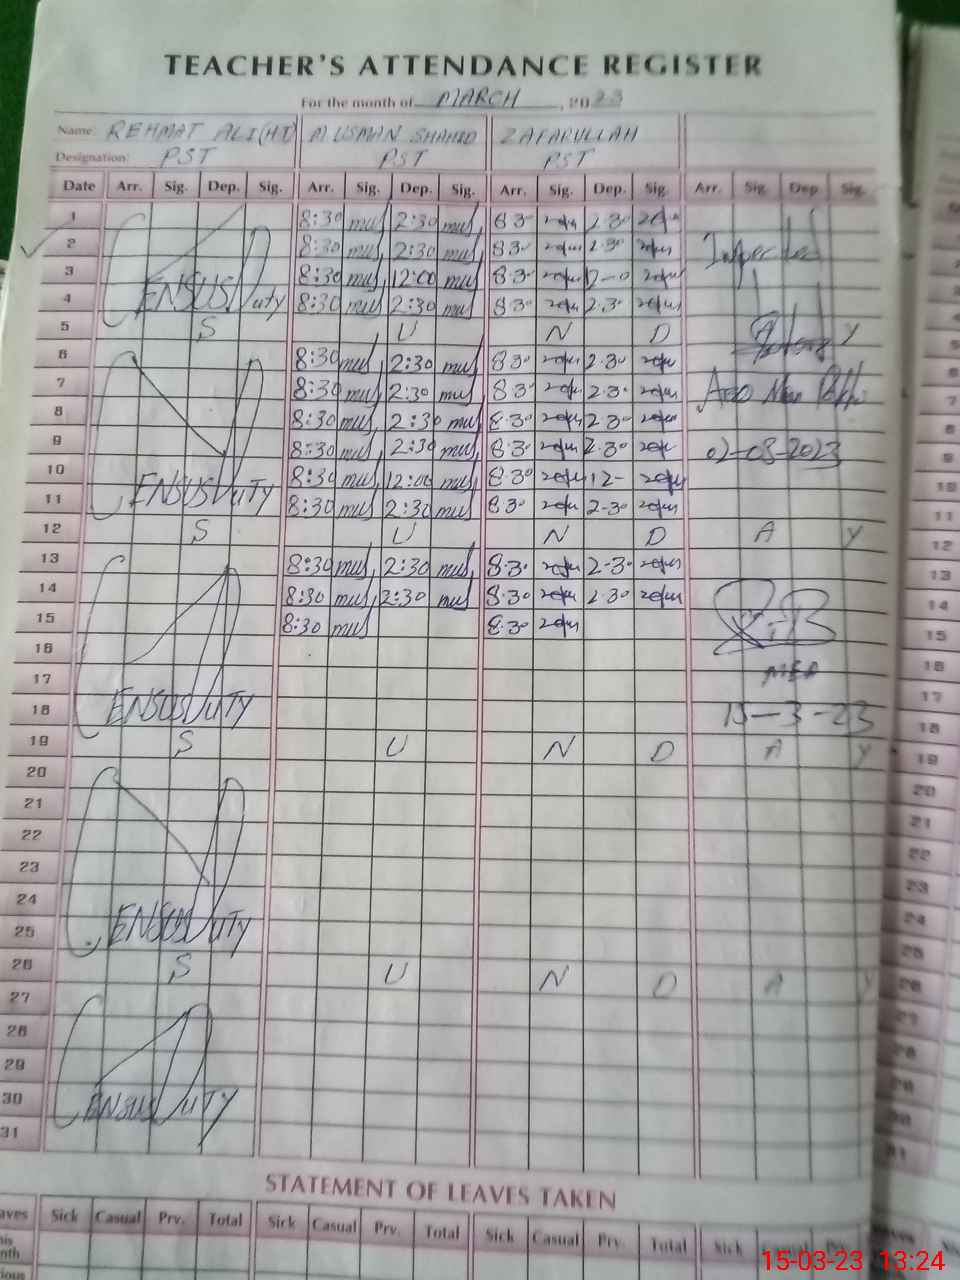 TEACHER'S ATTENDANCE REGISTER
For the month of MARCH, 2023
Name: REHMAT ALI(HT) M USMAN SHAHID ZAFARULLAH
Designation: PST PST PST
Date Arr. Sig. Dep. Sig. Arr. Sig. Dep. Sig. Arr. Sig. Dep. Sig. Arr. Sig. Dep. Sig.
1 8:30 mus 2:30 mus 8 30 2.30
2 8:30 mus 2:30 mus 8 30 2.30 Inspected
3 8:30 mus 12:00 mus 8.30 12-0
4 CENSUS Duty 8:30 mus 2:30 mus 8.30 2.30
5 S U N D A Y
6 8:30 mus 2:30 mus 8 30 2.30
7 8:30 mus 2:30 mus 8.30 2.30
8 8:30 mus 2:30 mus 8.30 2.30
9 8:30 mus 2:30 mus 8.30 2.30 02-03-2023
10 CENSUS Duty 8:30 mus 12:00 mus 8.30 12-
11 8:30 mus 2:30 mus 8 30 2-30
12 S U N D A Y
13 8:30 mus 2:30 mus 8.30 2-30
14 8:30 mus 2:30 mus 8.30 2.30
15 8:30 mus 8.30
16
17 MEA
18 CENSUS Duty 15-3-23
19 S U N D A Y
20
21
22
23
24
25 CENSUS Duty
26 S U N D A Y
27
28
29
30 CENSUS Duty
31
STATEMENT OF LEAVES TAKEN
Sick Casual Prv. Total Sick Casual Prv. Total Sick Casual Prv. Total Sick Casual Prv.
15-03-23 13:24